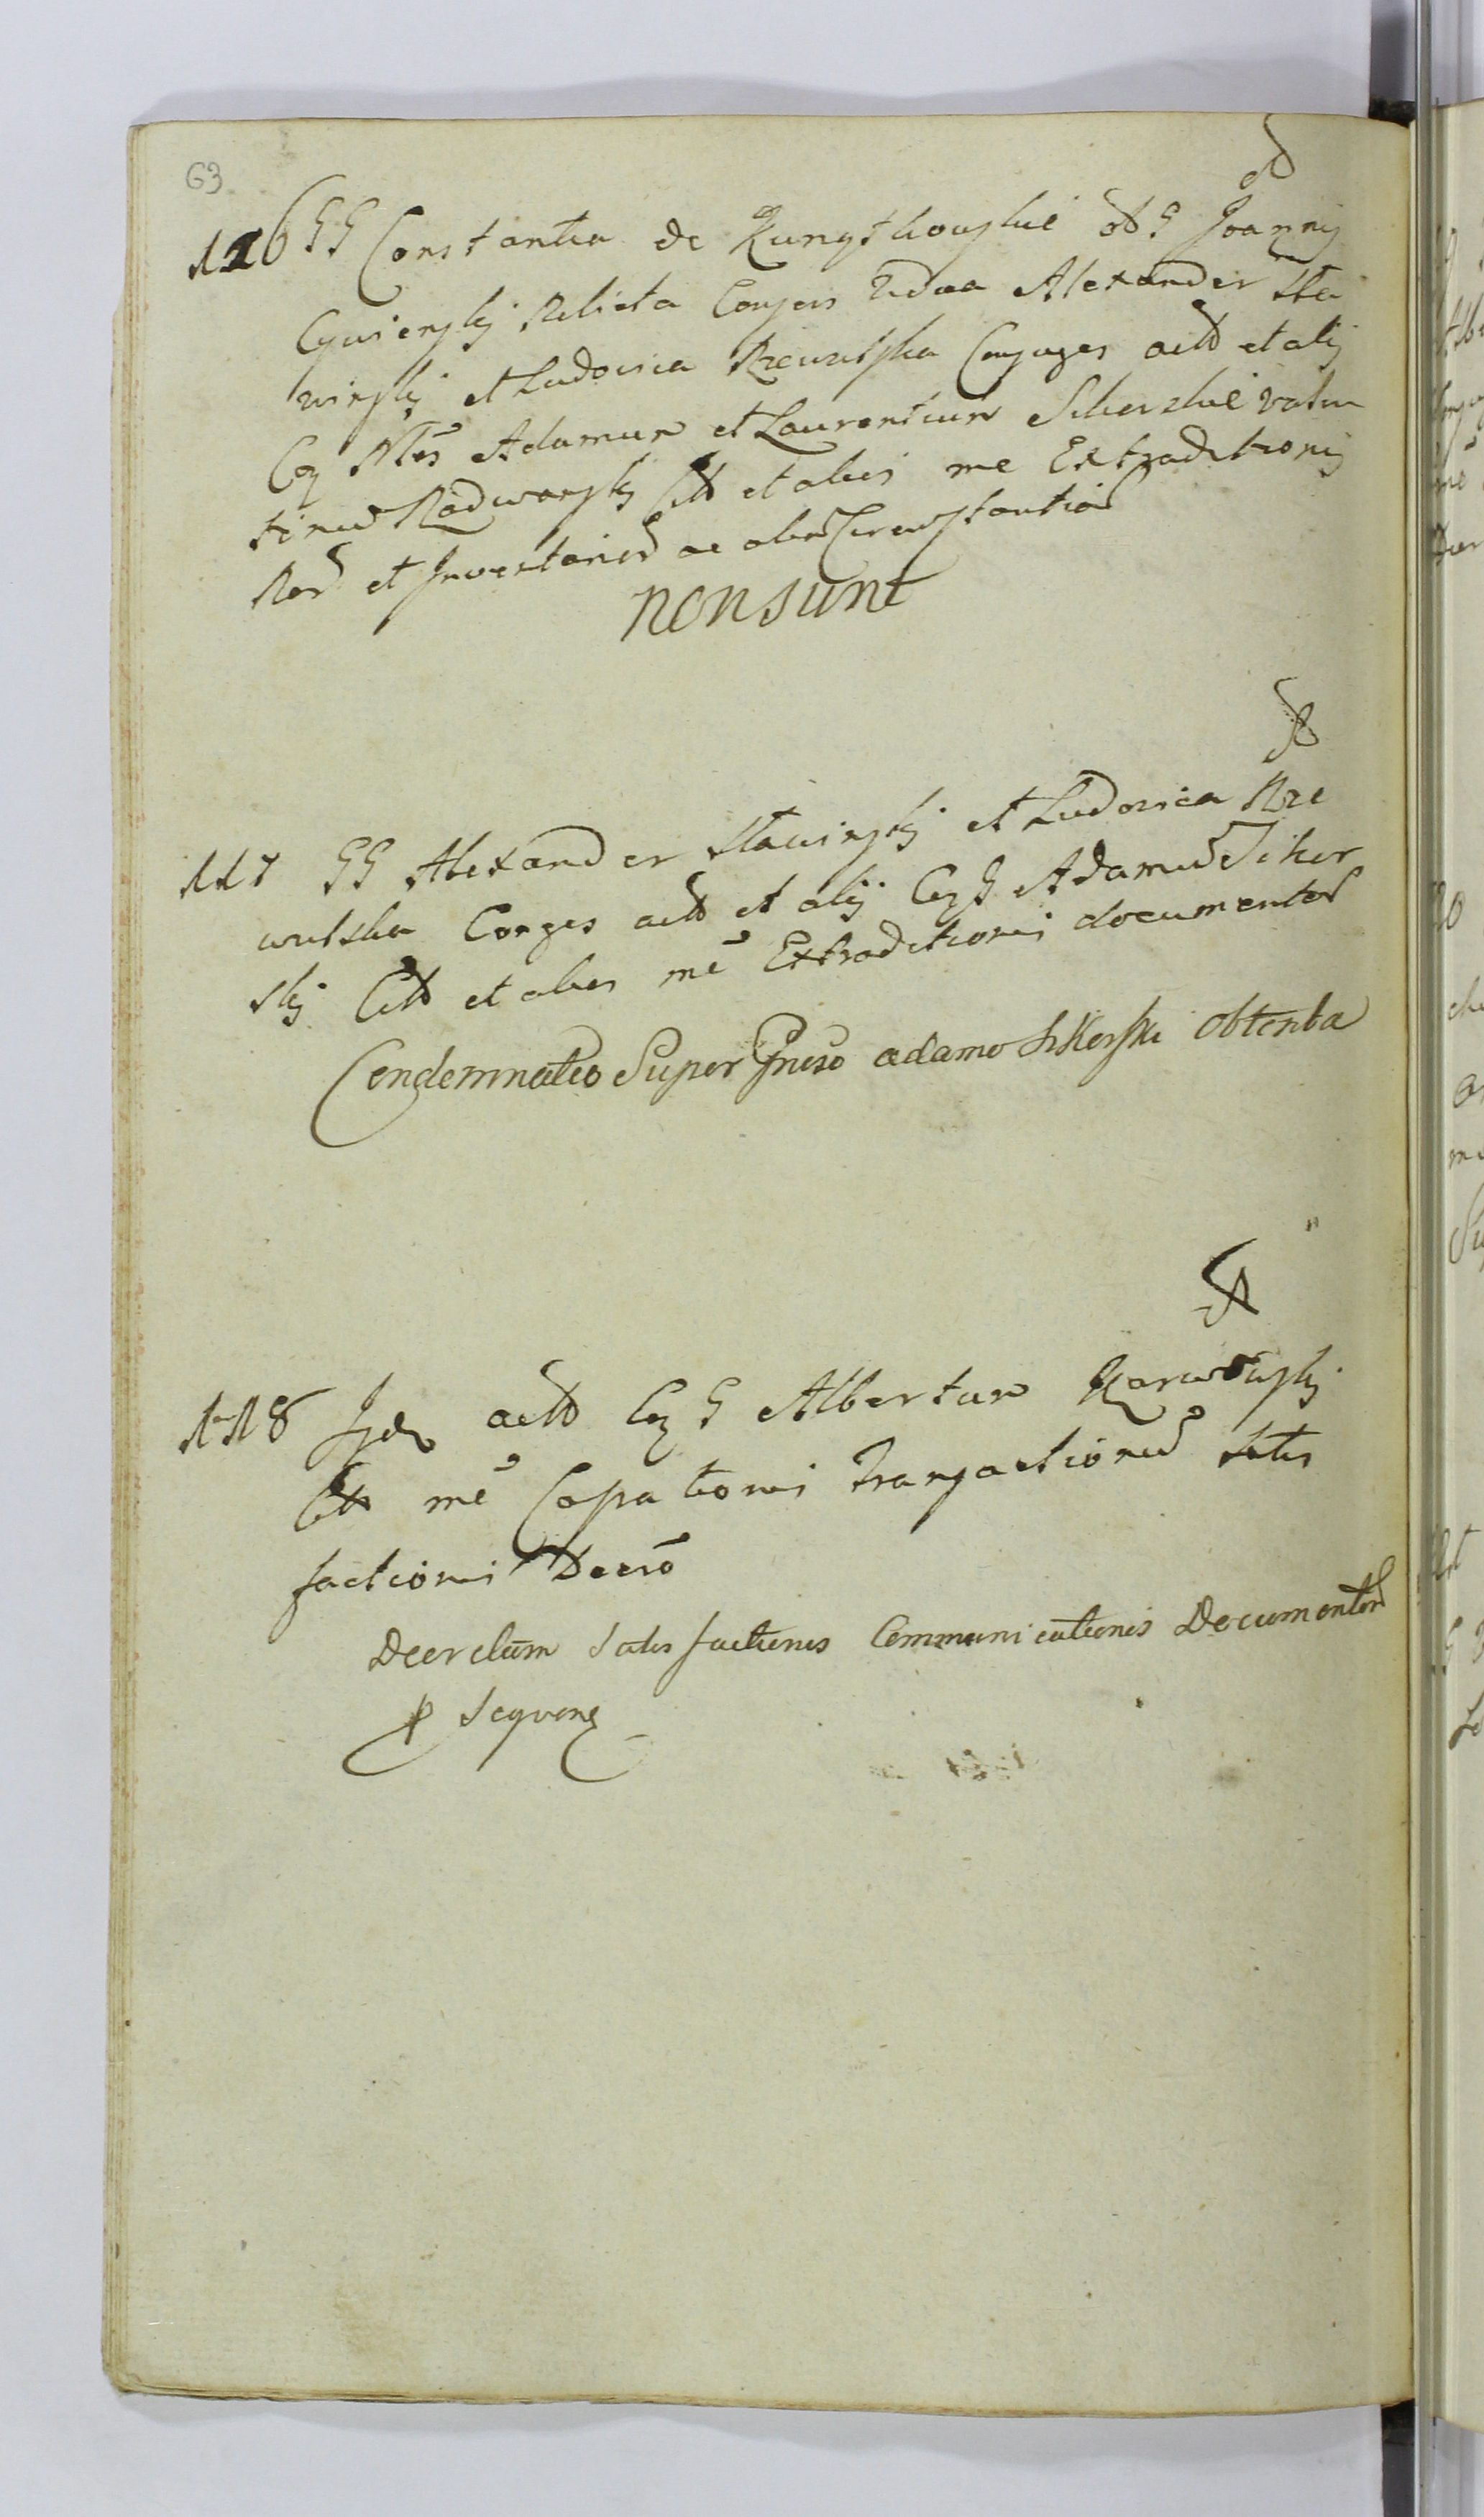 63
116 GG Constantia de Kunqthouskie Joannis
Cywienskj Relicta Conjux Vidua Alexander Sta
winskj et Ludovica Rzewutska Conjuges act et alij
Cq Nles Adamum et Laurentium Sikorskie Valen
tinum Radwanskj Citt et alios me Extraditionis
Rer et Inventarior ac alia Circumstantiar
non sunt
117 GG Alexander Stawinskj et Ludovica Rze
wutska Conges act et alij Cq G Adamum Sikor
skj Citt et alios me Extraditionis documentor
Condemnatio Super Gneso adamo Sikorski obtenta
118 Iyde act Cq G Albertum Karwowskj
Citt me Copationis Transactionum Satis
factionis Decro
Decretum Satisfactionis Communicationis Documentor
p Sequens